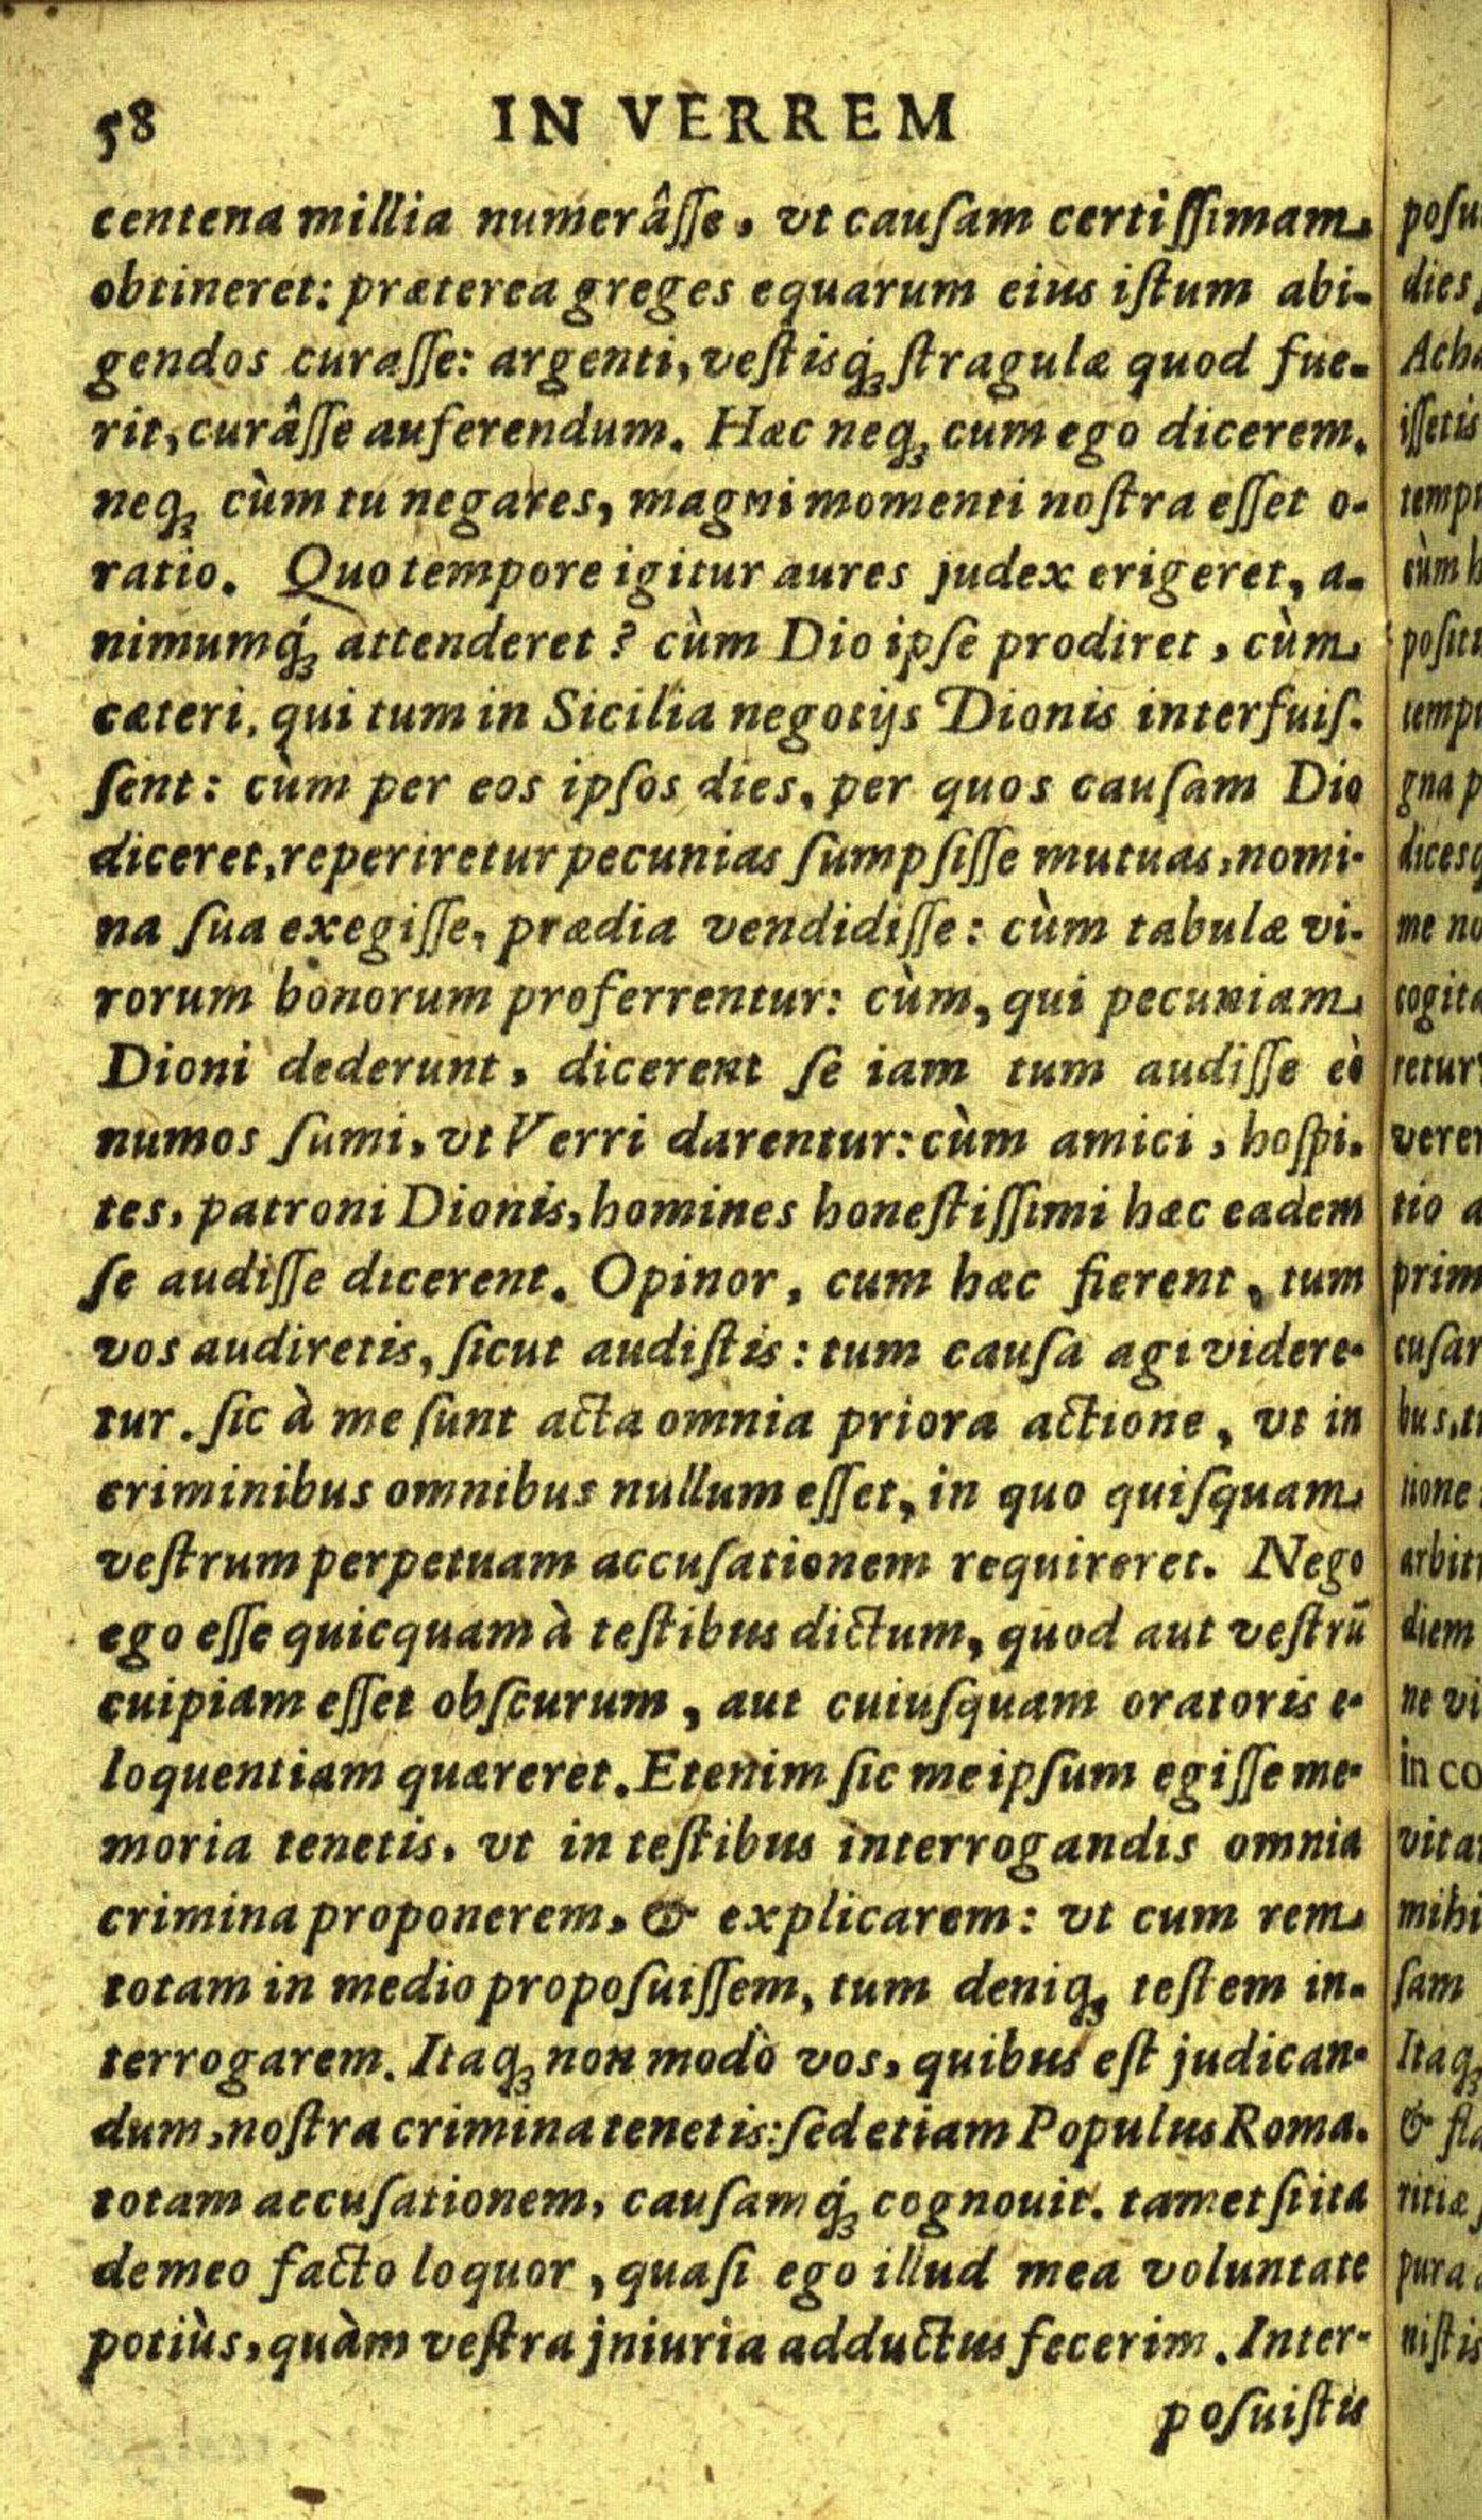 58 IN VERREM
centena millia numerâſſe, vt cauſam certiſſimam
obtineret: præterea greges equarum eius iſtum abi-
gendos curaſſe: argenti, veſtisq́ꝫ ſtragulæ quod fue-
rit, curâſſe auferendum. Hæc neqꝫ cum ego dicerem,
neqꝫ cùm tu negares, magni momenti noſtra eſſet o-
ratio. Quo tempore igitur aures judex erigeret, a-
nimumq́ꝫ attenderet? cùm Dio ipſe prodiret, cùm
cæteri, qui tum in Sicilia negotijs Dionis interfuiſ-
ſent: cùm per eos ipſos dies, per quos cauſam Dio
diceret, reperiretur pecunias ſumpſiſſe mutuas, nomi-
na ſua exegiſſe, prædia vendidiſſe: cùm tabulæ vi-
rorum bonorum proferrentur: cùm, qui pecuniam
Dioni dederunt, dicerent ſe iam tum audiſſe eò
numos ſumi, vt Verri darentur: cùm amici, hoſpi-
tes, patroni Dionis, homines honeſtiſſimi hæc eadem
ſe audiſſe dicerent. Opinor, cum hæc fierent, tum
vos audiretis, ſicut audiſtis: tum cauſa agi videre-
tur. ſic à me ſunt acta omnia priora actione, vt in
criminibus omnibus nullum eſſet, in quo quiſquam
veſtrum perpetuam accuſationem requireret. Nego
ego eſſe quicquam à teſtibus dictum, quod aut veſtrū
cuipiam eſſet obſcurum, aut cuiuſquam oratoris e-
loquentiam quæreret. Etenim ſic meipſum egiſſe me-
moria tenetis, vt in teſtibus interrogandis omnia
crimina proponerem, & explicarem: vt cum rem
totam in medio propoſuiſſem, tum deniqꝫ teſtem in-
terrogarem. Itaqꝫ non modò vos, quibus eſt judican-
dum, noſtra crimina tenetis: ſed etiam Populus Roma.
totam accuſationem, cauſamq́ꝫ cognouit. tametſi ita
de meo facto loquor, quaſi ego illud mea voluntate
potiùs, quàm veſtra jniuria adductus fecerim. Inter-
poſuiſtis